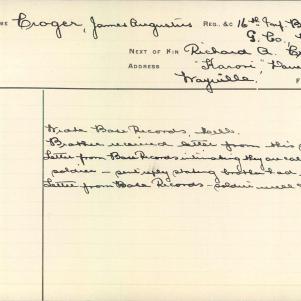 ME Croger, James Augustus REG. &C 16th Inf B
G. Co.
NEXT OF KIN Richard A. Cr
ADDRESS "Karori"
Wayville
F
Wrote Base Records, Melb.
Brother received letter from this
Letter from Base Records intimating they are
soldier - sent reply stating brother had
Letter from Base Records - soldier well